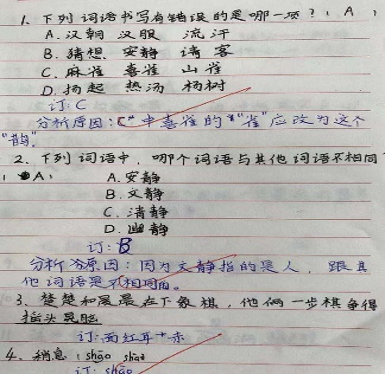 1. 下列词语书写有错误的是哪一项?( A )
A. 汉朝 汉服 流汗
B. 猜想 安静 请客
C. 麻雀 喜雀 山雀
D. 扬起 热汤 杨树
订: C
分析原因:C"中喜雀的"雀"应改为这个
"鹊"。
2. 下列词语中,哪个词语与其他词语不相同?
( A ) A. 安静
B. 文静
C. 清静
D. 幽静
订: B
分析原因:因为文静指的是人,跟其
他词语是不相同的。
3. 楚楚和晨晨在下象棋,他俩一步棋争得
摇头晃脑
订:面红耳赤
4. 稍息(shāo shào
订: shào